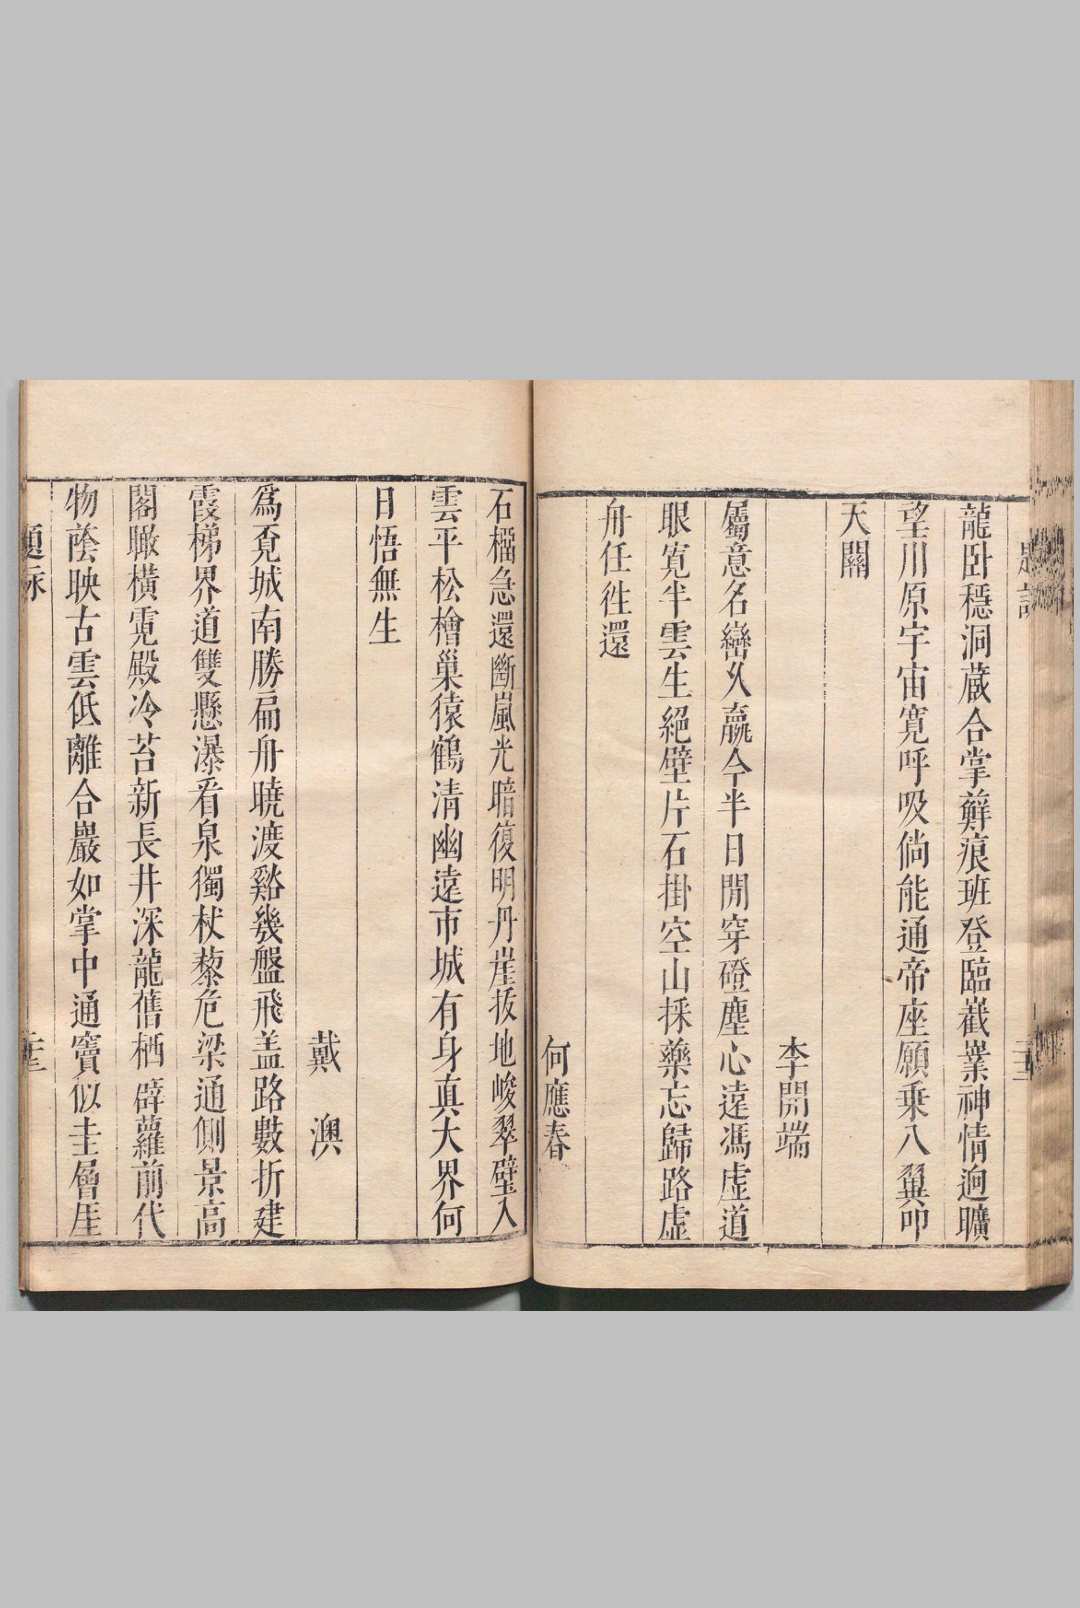 龍卧穩洞蔵合掌蘚痕班登臨截嶪神情逈曠
望川原宇宙寬呼吸倘能通帝座願乗八翼叩
天關
李開端
屬意名巒乆贏今半日閒穿磴塵心遠馮虛道
眼寛半雲生絕壁片石掛空山採藥忘歸路虛
舟任徃還
何應春
石橊急還斷嵐光暗復明丹崖拔地峻翠壁入
雲平松檜巢猿鶴清幽遠市城有身真大界何
日悟無生
戴澳
爲覔城南勝扁舟曉渡谿幾盤飛盖路數折建
霞梯界道雙懸瀑看泉獨杖藜危梁通側景高
閣瞰橫霓殿冷苔新長井深龍舊栖薜蘿前代
物蔭映古雲低離合巖如掌中通竇似圭層厓
題詠